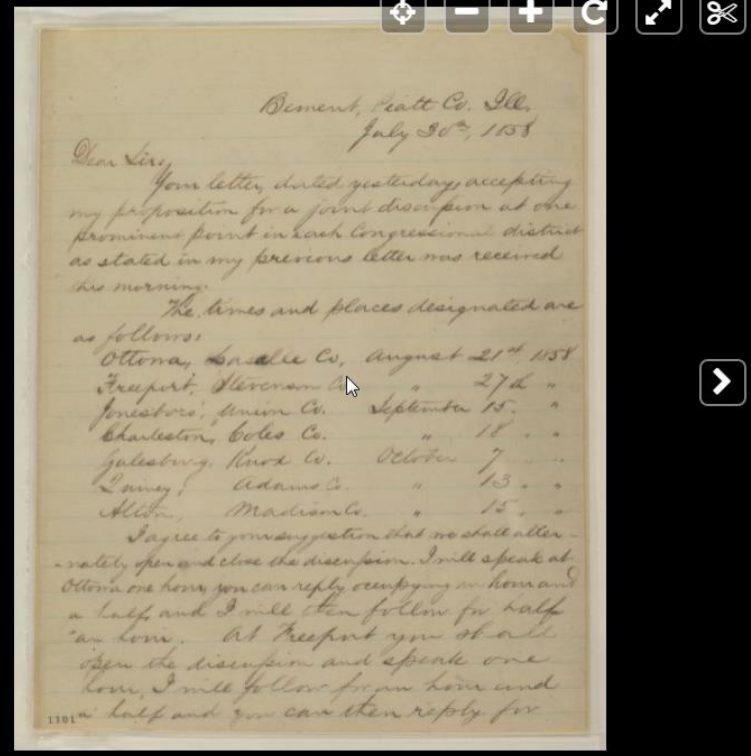 Bement, Piatt Co. Ill.
July 30th, 1858
Dear Sir,
Your letter, dated yesterday, accepting
my proposition for a joint discussion at one
prominent point in each Congressional district
as stated in my previous letter was received
this morning.
The times and places designated are
as follows:
Ottowa, Lasalle Co, August 21st 1858
Freeport, Stevenson Co. " 27th "
Jonesboro', Union Co. September 15. "
Charleston, Coles Co. " 18 . "
Galesburg, Knox Co. October 7 "
Quincy, Adams Co. " 13 . "
Alton, Madison Co. " 15. "
I agree to your suggestion that we shall alter-
-nately open and close the discussion. I will speak at
Ottowa one hour, you can reply occupying an hour and
a half, and I will then follow for half
an hour. At Freeport you shall
open the discussion and speak one
hour, I will follow for an hour and
a half and you can then reply for
1101